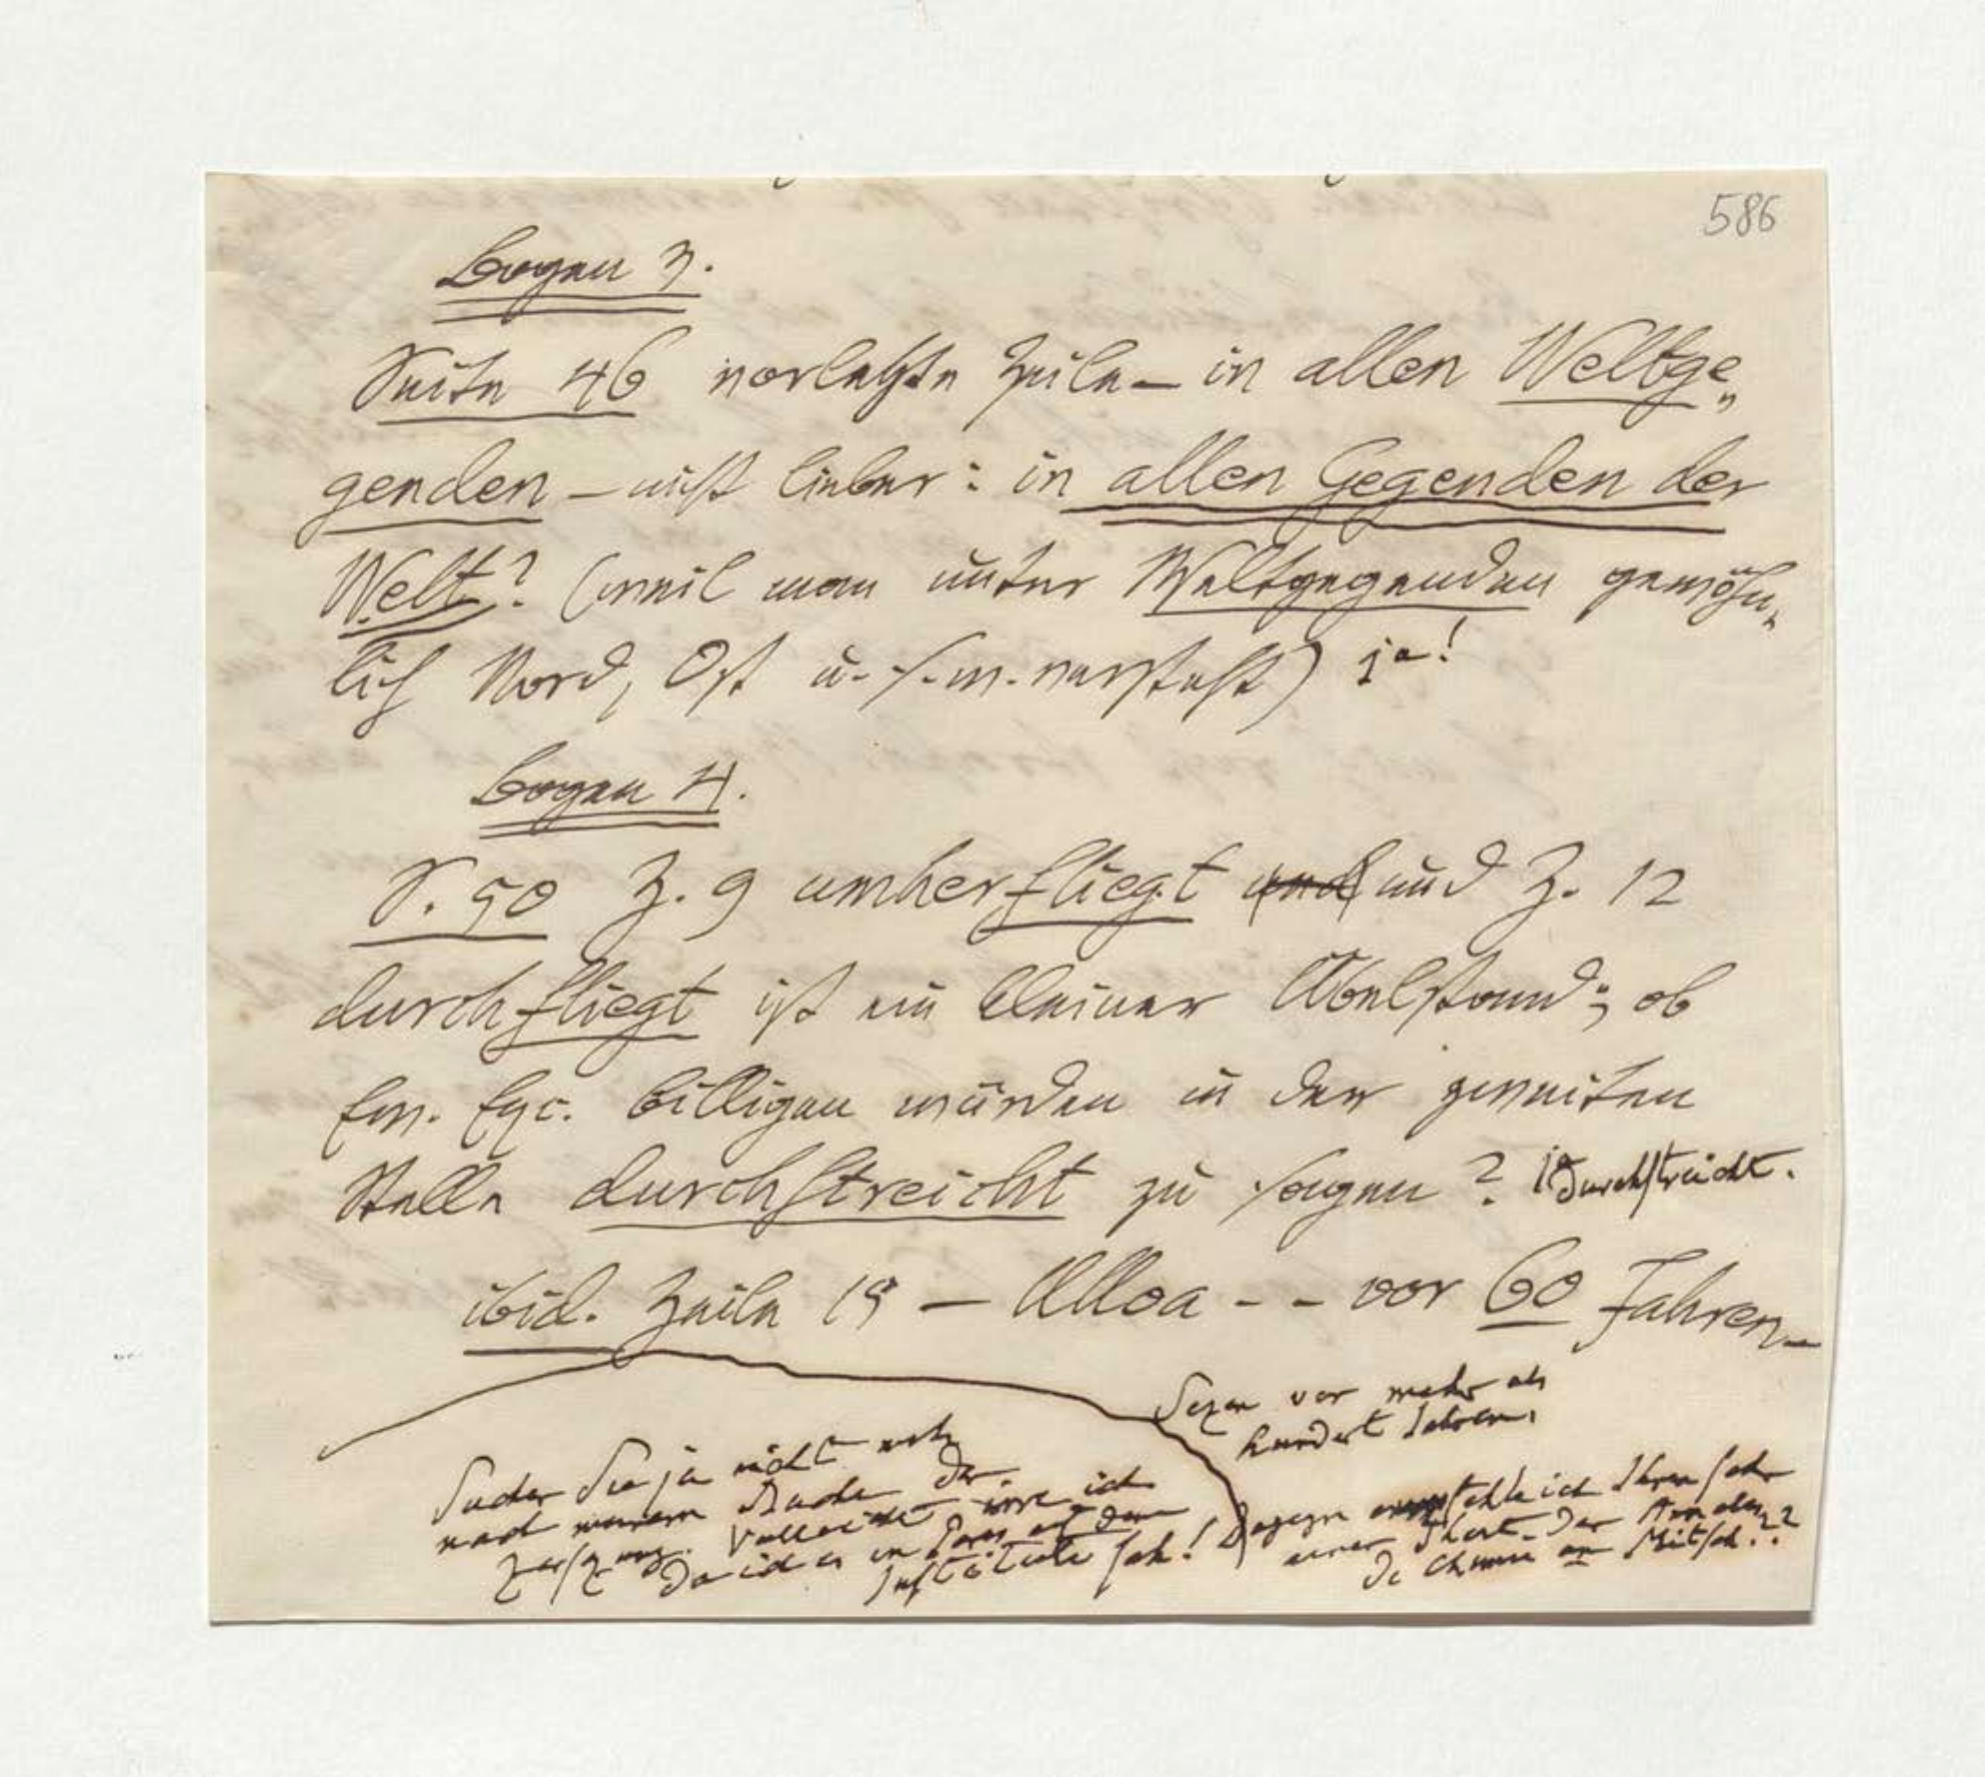 586
Bogen 3.
Seite 46 vorletzte Zeile – in allen Weltge„
genden – nicht lieber: in allen Gegenden der
Welt? (weil man unter Weltgegenden gewöhn„
lich Nord, Ost u. s. w. versteht) ja!
Bogen 4.
S. 50 Z. 9 umherfliegt und und Z. 12
durchfliegt ist ein kleiner Übelstand; ob
Ew. Exc. billigen würden in der zweiten
Stelle durchstreicht zu sagen? ja durchstreicht.
ibid. Zeile 15 – Ulloa - - vor 60 Jahren –
Sezen vor mehr als
hundert Jahren.
Suchen Sie ja nicht mehr
nach meinem Buche der
Vielleicht irre ich
da ich es in Paris auf dem
Institute sah!
Dagegen empfehle ich Ihnen sehr
einer der Annalen
de Chimie an Mitsch.??